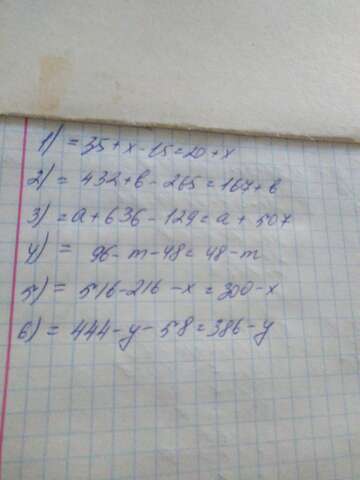 1) = 35+x-15=20+x
2) = 432+b-265=167+b
3) = a+636-129=a+507
4) = 96-m-48=48-m
5) = 516-216-x=300-x
6) = 444-y-58=386-y